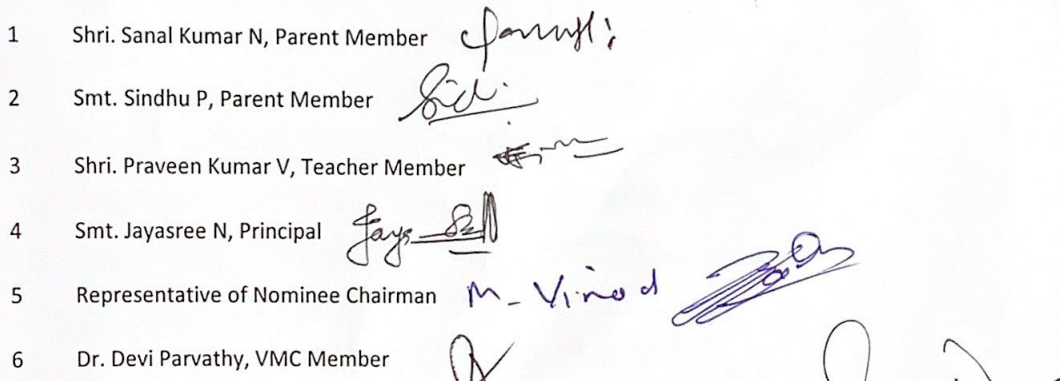 1 Shri. Sanal Kumar N, Parent Member
2 Smt. Sindhu P, Parent Member
3 Shri. Praveen Kumar V, Teacher Member
4 Smt. Jayasree N, Principal
5 Representative of Nominee Chairman M- Vinod
6 Dr. Devi Parvathy, VMC Member